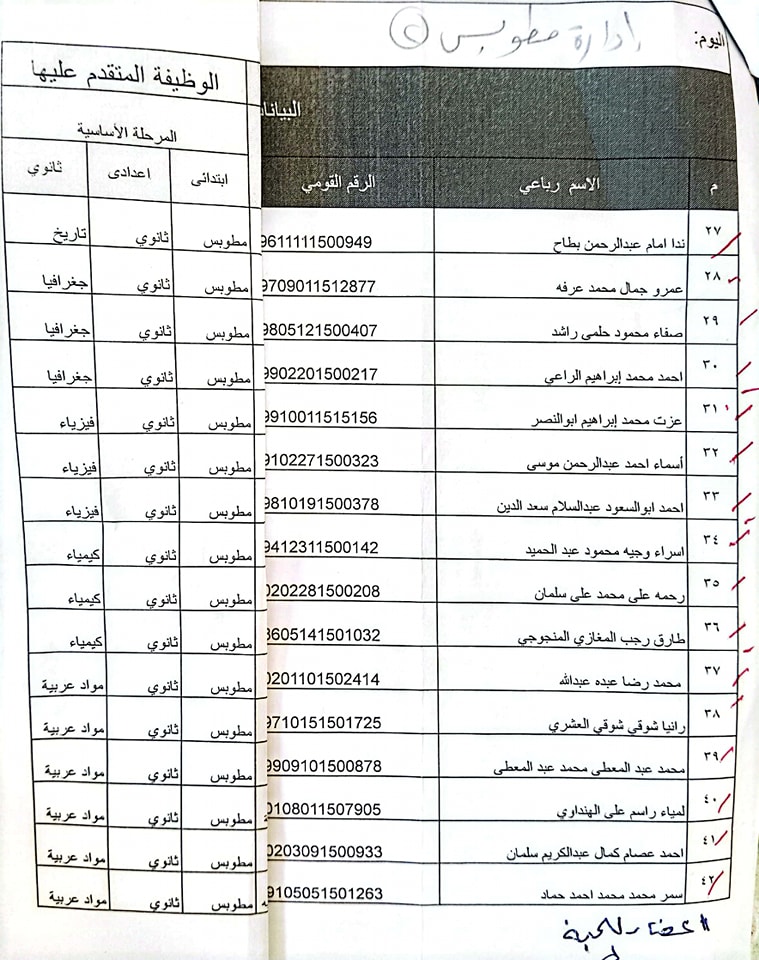 اليوم: إدارة مطوبس (٢)
البيانات الوظيفة المتقدم عليها
المرحلة الأساسية
م الاسم رباعي الرقم القومي ابتدائى اعدادى ثانوي
٢٧ ندا امام عبدالرحمن بطاح 9611111500949 مطوبس ثانوي تاريخ
٢٨ عمرو جمال محمد عرفه 9709011512877 مطوبس ثانوي جغرافيا
٢٩ صفاء محمود حلمى راشد 9805121500407 مطوبس ثانوي جغرافيا
٣٠ احمد محمد إبراهيم الراعي 9902201500217 مطوبس ثانوي جغرافيا
٣١ عزت محمد إبراهيم ابوالنصر 9910011515156 مطوبس ثانوي فيزياء
٣٢ أسماء احمد عبدالرحمن موسى 9102271500323 مطوبس ثانوي فيزياء
٣٣ احمد ابوالسعود عبدالسلام سعد الدين 9810191500378 مطوبس ثانوي فيزياء
٣٤ اسراء وجيه محمود عبد الحميد 9412311500142 مطوبس ثانوي كيمياء
٣٥ رحمه على محمد على سلمان 0202281500208 مطوبس ثانوي كيمياء
٣٦ طارق رجب المغازي المنجوجي 8605141501032 مطوبس ثانوي كيمياء
٣٧ محمد رضا عبده عبدالله 0201101502414 مطوبس ثانوي مواد عربية
٣٨ رانيا شوقي شوقي العشري 9710151501725 مطوبس ثانوي مواد عربية
٣٩ محمد عبد المعطى محمد عبد المعطى 9909101500878 مطوبس ثانوي مواد عربية
٤٠ لمياء راسم على الهنداوي 0108011507905 مطوبس ثانوي مواد عربية
٤١ احمد عصام كمال عبدالكريم سلمان 0203091500933 مطوبس ثانوي مواد عربية
٤٢ سمر محمد محمد احمد حماد 9105051501263 مطوبس ثانوي مواد عربية
اعضاء اللجنة